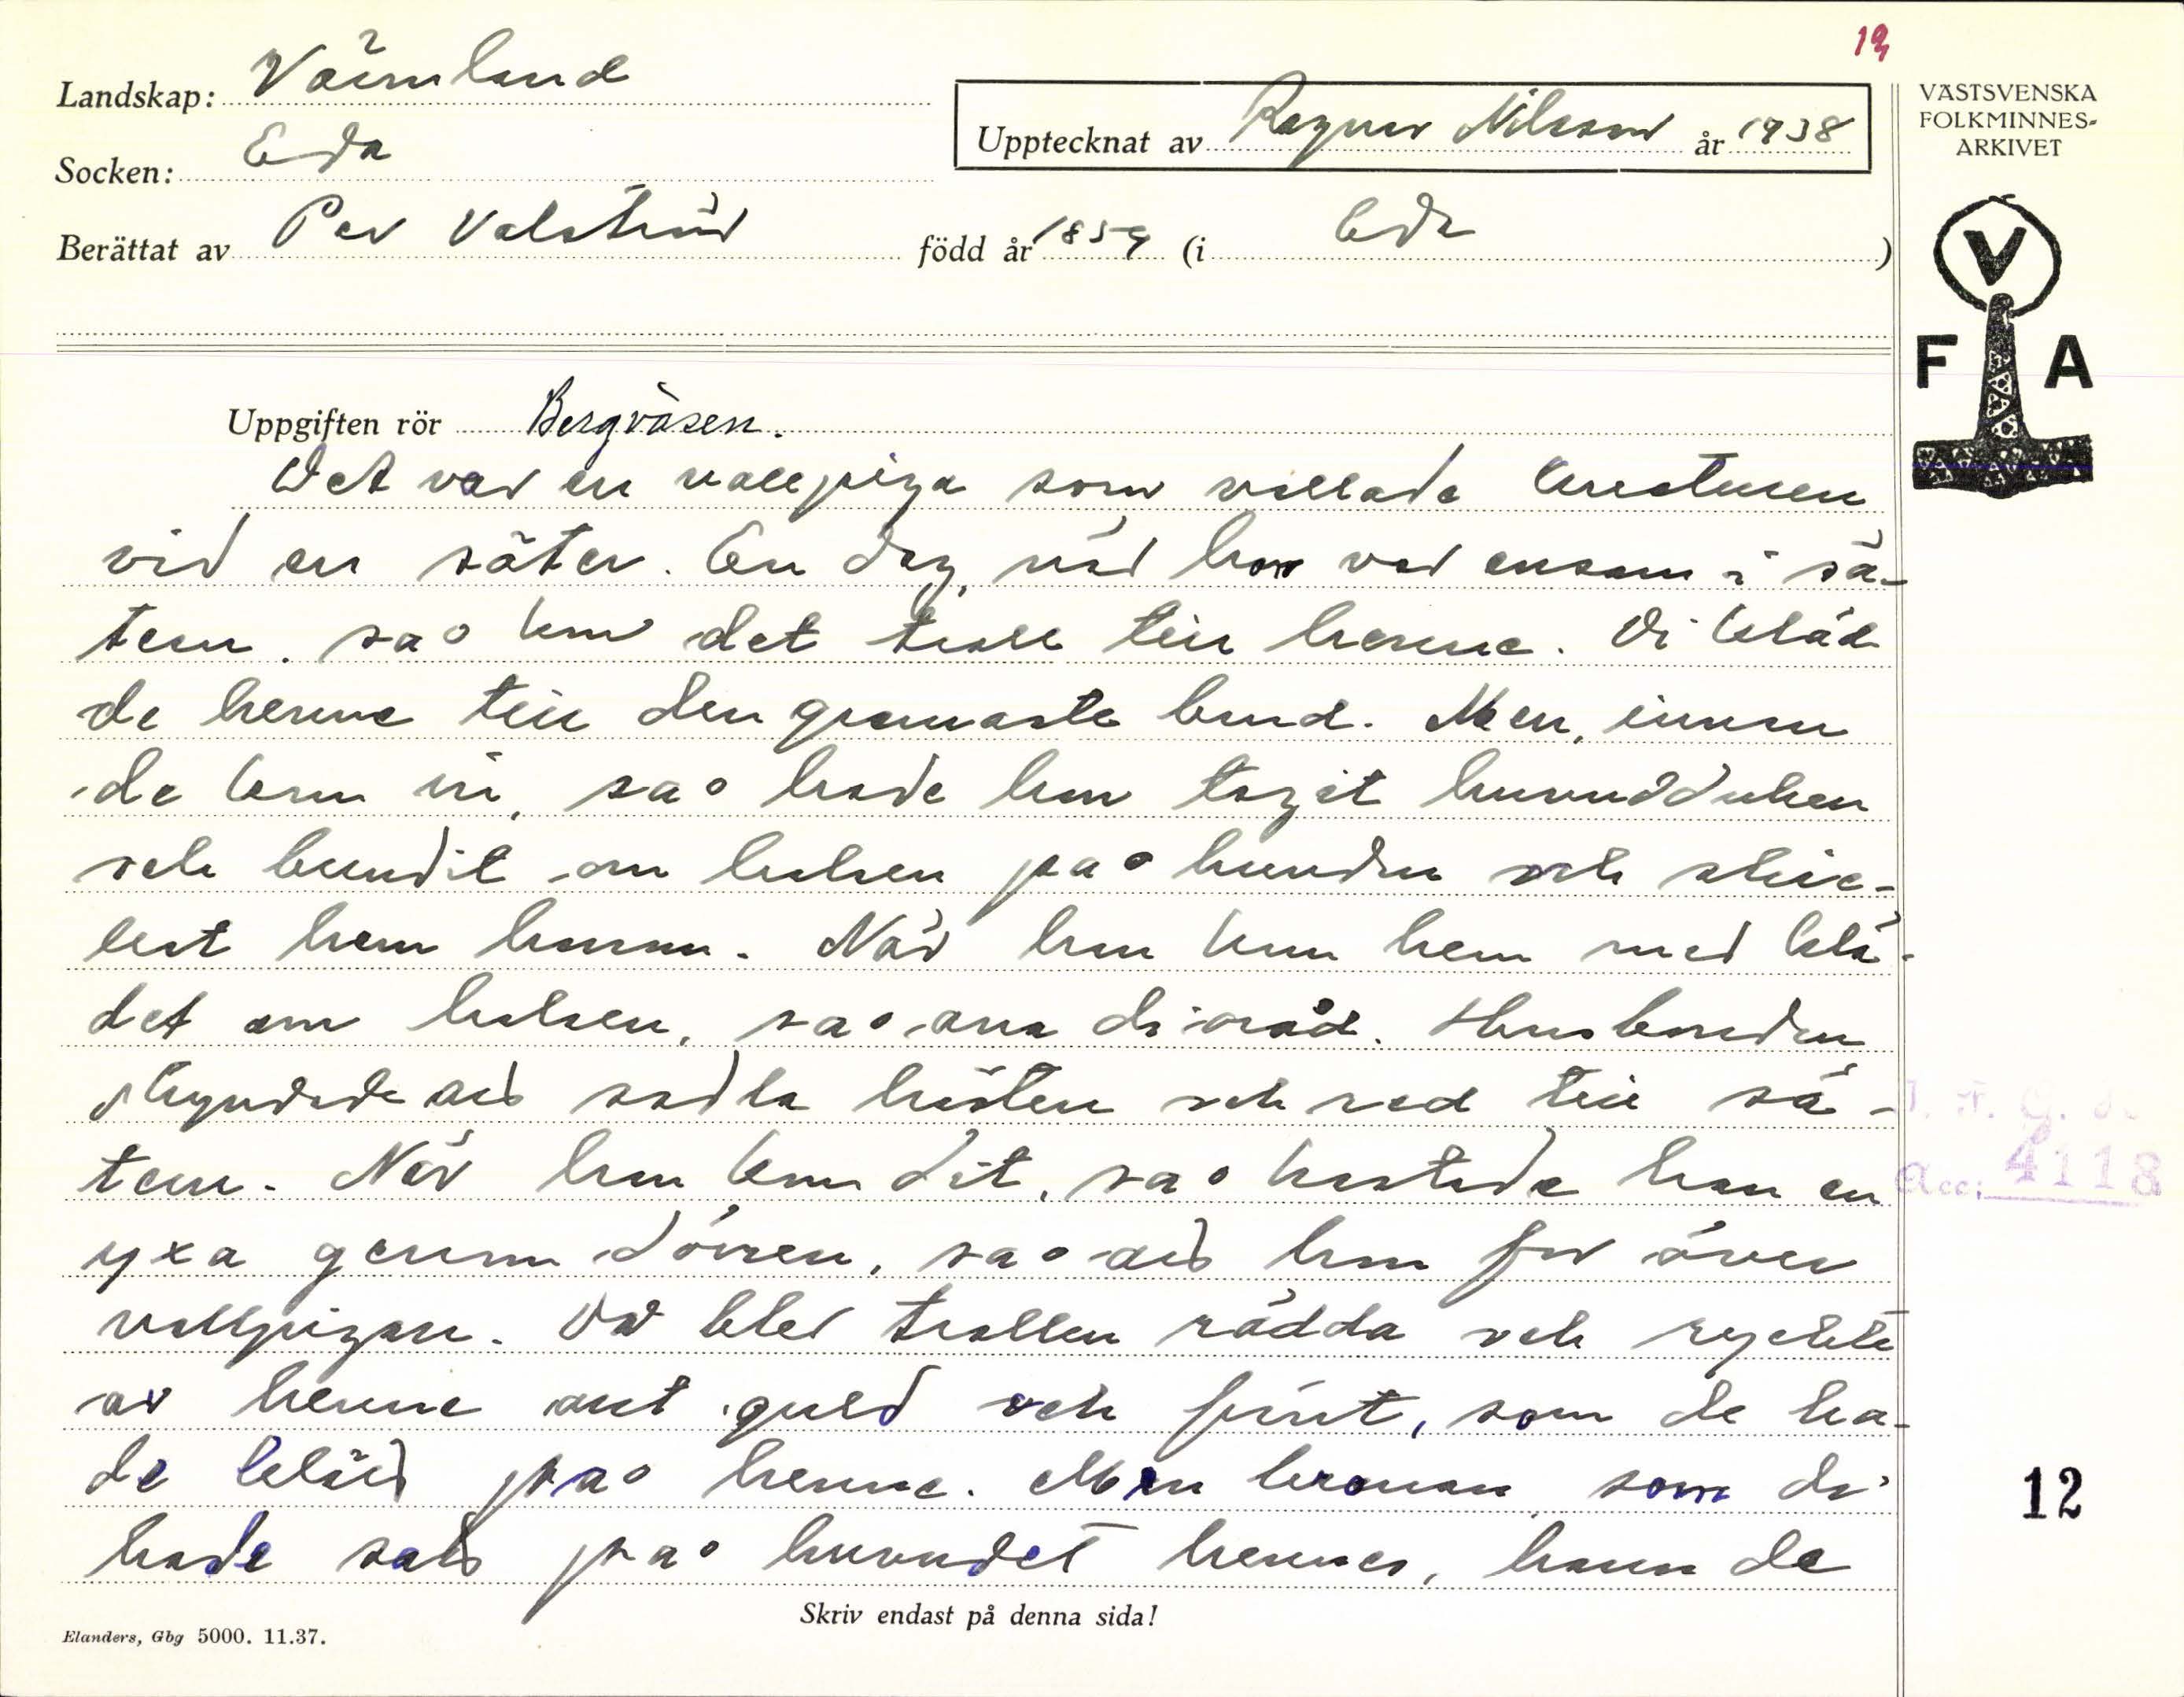 19
Landskap: Värmland
Socken: Eda
Upptecknat av Ragnar Nilsson år 1938
Berättat av Per Valstrüd född år 1859 (i Eda )
VÄSTSVENSKA
FOLKMINNES-
ARKIVET
V
F A
Uppgiften rör Bergväsen.
Det var en vallpiga som vallade kreaturen
vid en säter. En dag, när hon var ensam i sä-
tern, sao kom det troll teiɩ henne. Di kläd
de henne teiɩ den grannaste brud. Men, innan
de kom in, sao hade hon tagit huvudduken
och bundit om halsen pao hunden och skic-
kat hem honom. När han kom hem med klä-
det om halsen, sao ana di oråd. Husbonden
skyndade att sadla hästen och red teiɩ sä-
tern. När han kom dit, sao kastade han en
yxa genom dörren, sao att hon for över
vallpigan. Då blev trollen rädda och ryckte
av henne aɩt guld och fint, som de ha-
de klätt pao henne. Men kronan som di
hade satt pao huvudet hennes, hann de
Acc: 4118
12
Skriv endast på denna sida!
Elanders, Gbg 5000. 11.37.